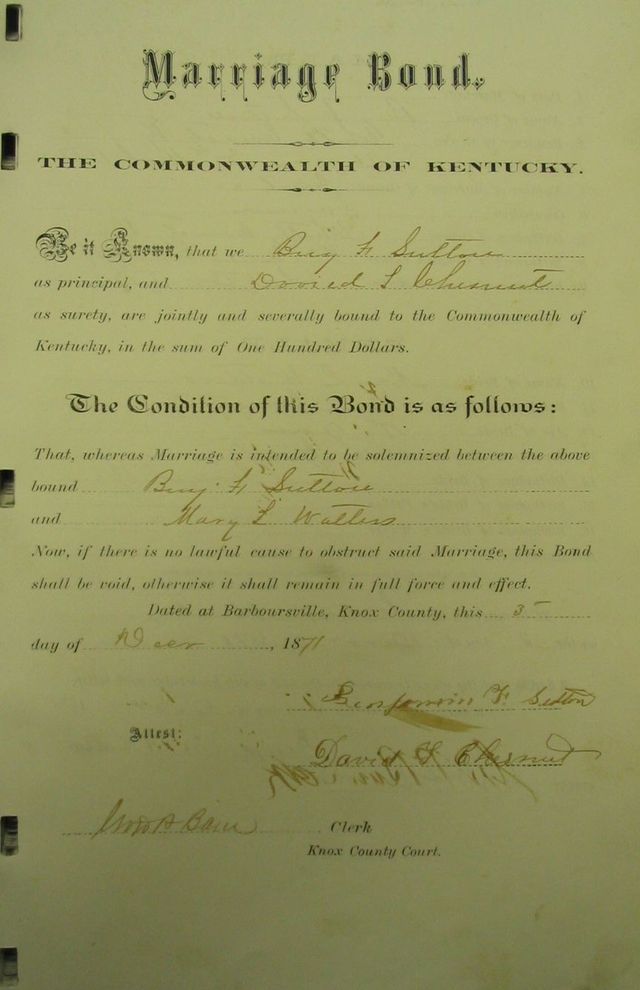 Marriage Bond.
THE COMMONWEALTH OF KENTUCKY.
Be it Known, that we Benj F Sutton
as principal, and David L Chesnut
as surety, are jointly and severally bound to the Commonwealth of
Kentucky, in the sum of One Hundred Dollars.
The Condition of this Bond is as follows:
That, whereas Marriage is intended to be solemnized between the above
bound Benj. F Sutton
and Mary L Walters
Now, if there is no lawful cause to obstruct said Marriage, this Bond
shall be void, otherwise it shall remain in full force and effect.
Dated at Barboursville, Knox County, this
day of Decr, 1871
Benjamin F. Sutton
Attest:
David Chesnut
Clerk
Knox County Court.